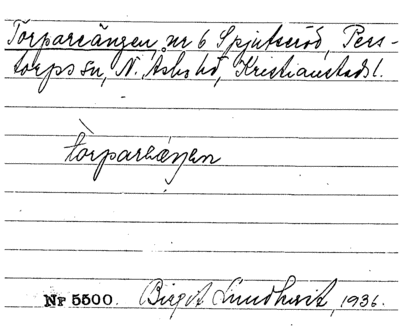 Torpareängen, nr 6 Spjutseröd, Pers-
torps sn, N. Åsbo hd, Kristianstads l.
tòrparеäŋen
Nr 5500. Birgit Lundkvist, 1936.